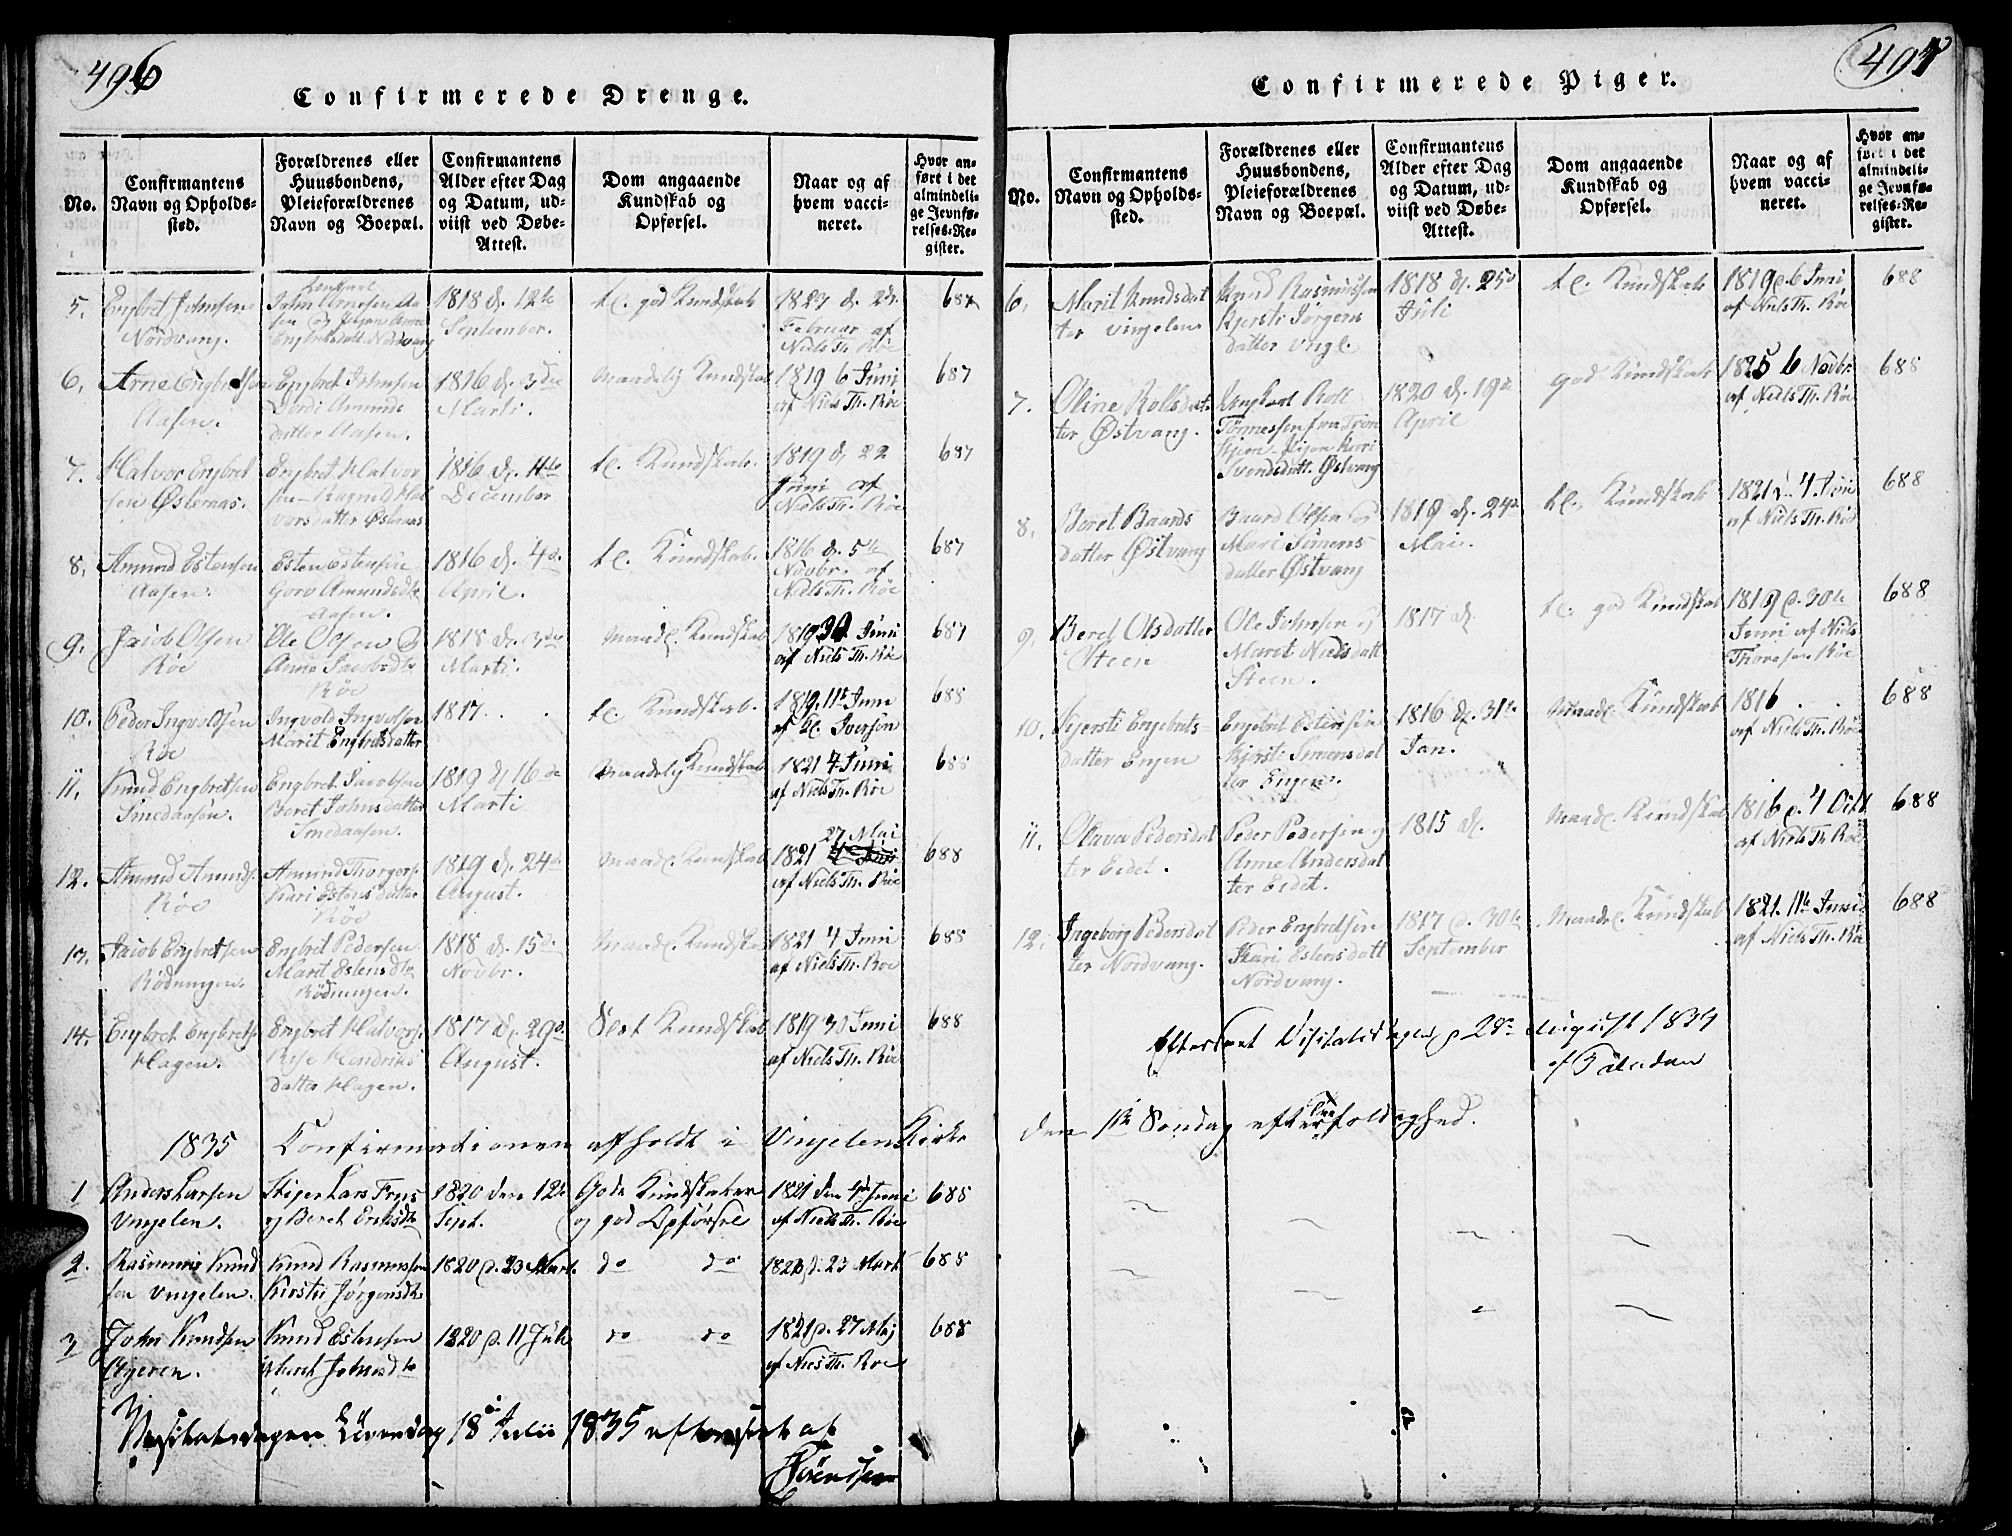 496
Confirmerede Drenge.
No.
Confirmantens
Navn og Opholds-
sted.
Forældrenes eller
Huusbondens,
Pleieforældrenes
Navn og Boepæl.
Confirmantens
Alder efter Dag
og Datum, ud-
viist ved Døbe-
Attest.
Dom angaaende
Kundskab og
Opførsel.
Naar og af
hvem vacci-
neret.
Hvor an-
ført i det
almindeli-
ge Jevnfø-
relses-Re-
gister.
5. Engbret Johnsen
Nordvang.
John Arnesen Aa-
sen og Pigen Anne
Engbretsdatt. Nordvang
1818 d. 12te
September.
tl. god Kundskab
1823 d. 24.
Februar af
Niels Th. Røe
687
6. Arne Engbretsen
Aasen.
Engbret Johnsen
Dordi Amunds
datter Aasen.
1816 d. 3die
Marti.
Maadelig Kundskab
1819 6 Juni
af Niels Th. Røe
687
7. Halvor Engbret
sen Østernæs.
Engbret Halvor
sen Ragnild Hal
vorsdatter Østernæs
1816 d. 11te
December
tl. Kundskab.
1819 d. 22
Juni af
Niels Th. Røe
687
8. Amund Estensen
Aasen.
Esten Estensen
Goro Amundsdtr
Aasen.
1816 d. 4de
April.
tl. Kundskab.
1816 d. 5te
Novbr. af
Niels Th. Røe
687
9. Jacob Olsen
Røe
Ole Olsen og
Anne Jacobsdtr
Røe
1818 d. 3die
Marti.
Maadl. Kundskab
1819 30 Juni
af Niels Th. Røe
687
10. Peder Ingvoldsen
Røe
Ingvold Ingvoldsen
Marit Engbretsdatter
1817.
tl. Kundskab.
1819. 11te Juni
af Iversen
688
11. Knud Engbretsen
Smedaasen.
Engbret Jacobsen
Beret Johnsdatter
Smedaasen.
1819 d. 16de
Marti
Maadelig Kundskab
1821 4 Juni
af Niels Th. Røe
688
12. Amund Amunds.
Røe
Amund Thorgers.
Kari Estensdatter
Røe
1819 d. 24de
August.
Maadl. Kundskab
27 Mai
1821
af Niels Th. Røe
688
13. Jacob Engbretsen
Rödningen.
Engbret Pedersen
Marit Estensdtr
Rödningen.
1818 d. 15de
Novbr.
Maadl. Kundskab
1821 4 Juni
af Niels Th. Roe
688
14. Engbret Engbrets
Hagen.
Engbret Halvors.
Hendriks
datter Hagen.
1817 d. 29de
August.
Slet Kundskab
1819 30 Juni
af Niels Th. Røe
688
1835 Confirmationen afholdt i Vingelens Kirke
1 Anders Larsen
Vingelen.
Lars
og Beret
1820 den 12te
Sept.
Gode Kundskaber
og god Opførsel
1821 den 4de Juni
af Niels Th. Røe
688
2. Rasmus Knud
sen Vingelen.
Knud Rasmussen
Kirsti Jørgensdtr
1820 d. 23 Mart.
do do
d. 23 Mart
688
3 John Knudsen
Knud Estensen
Johnsdtr
1820 d. 11 Juli
do do
1821 d. 27 Maj
af Niels Th. Roe
688
Visitatsdagen Løverdag 18de Julii 1835 efterseet af
Sørenssen
497
Confirmerede Piger.
No.
Confirmantens
Navn og Opholds-
sted.
Forældrenes eller
Huusbondens,
Pleieforældrenes
Navn og Boepæl.
Confirmantens
Alder efter Dag
og Datum, ud-
viist ved Døbe-
Attest.
Dom angaaende
Kundskab og
Opførsel.
Naar og af
hvem vacci-
neret.
Hvor an-
ført i det
almindeli-
ge Jevnfø-
relses-Re-
gister.
6. Marit Knudsdat
ter Vingelen
Knud Rasmussen
Kjersti Jørgens
datter Vingl.
1818 d. 25de
Juli
tl. Kundskab
1819 d. 6 Juni
af Niels Th. Røe
688
7. Oline Rolfsdat
ter Østvang.
Ungkarl Rolf
Tønnessen fra Tron
hjem - Pigen Kari
Svendsdatt. Østvang
1820 d. 19de
April
god Kundskab
1825 6 Novbr.
af Niels Th. Røe
688
8. Beret Baards
datter Østvang
Baard Olsen og
Mari Simens
datter Østvang
1819 d. 24de
Mai.
tl. Kundskab
1821 d. 4. Juni
af Niels Th. Røe
688
9. Beret Olsdatter
Steen
Ole Johnsen og
Maret Nielsdatt
Steen.
1817 d.
tl. god Kundskab
1819 d. 30te
Juni af Niels
Thoresen Røe
688
10. Kjersti Engebrets-
datter Engen
Engebret Estensen
Kjersti Simensdat
ter Engen.
1816 d. 31te
Jan.
Maadl. Kundskab
1816
af Niels Th. Røe
688
11. Olava Pedersdat
ter Eidet.
Peder Pedersen og
Anne Andersdat
ter Eidet.
1815 d.
Maadl. Kundskab
1816 d. 4 Octb
af Niels Th. Røe
688
12. Ingeborg Pedersdat
ter Nordvang.
Peder Engbretsen
Kari Estensdatt
Nordvang.
1817 d. 30te
September
Maadl. Kundskab
1821. 11te Juni
af Niels Th. Røe
688
Efterseet Visitatsdagen d 28de August 1834
af
den 1ste Søndag efter Trefoldighed.